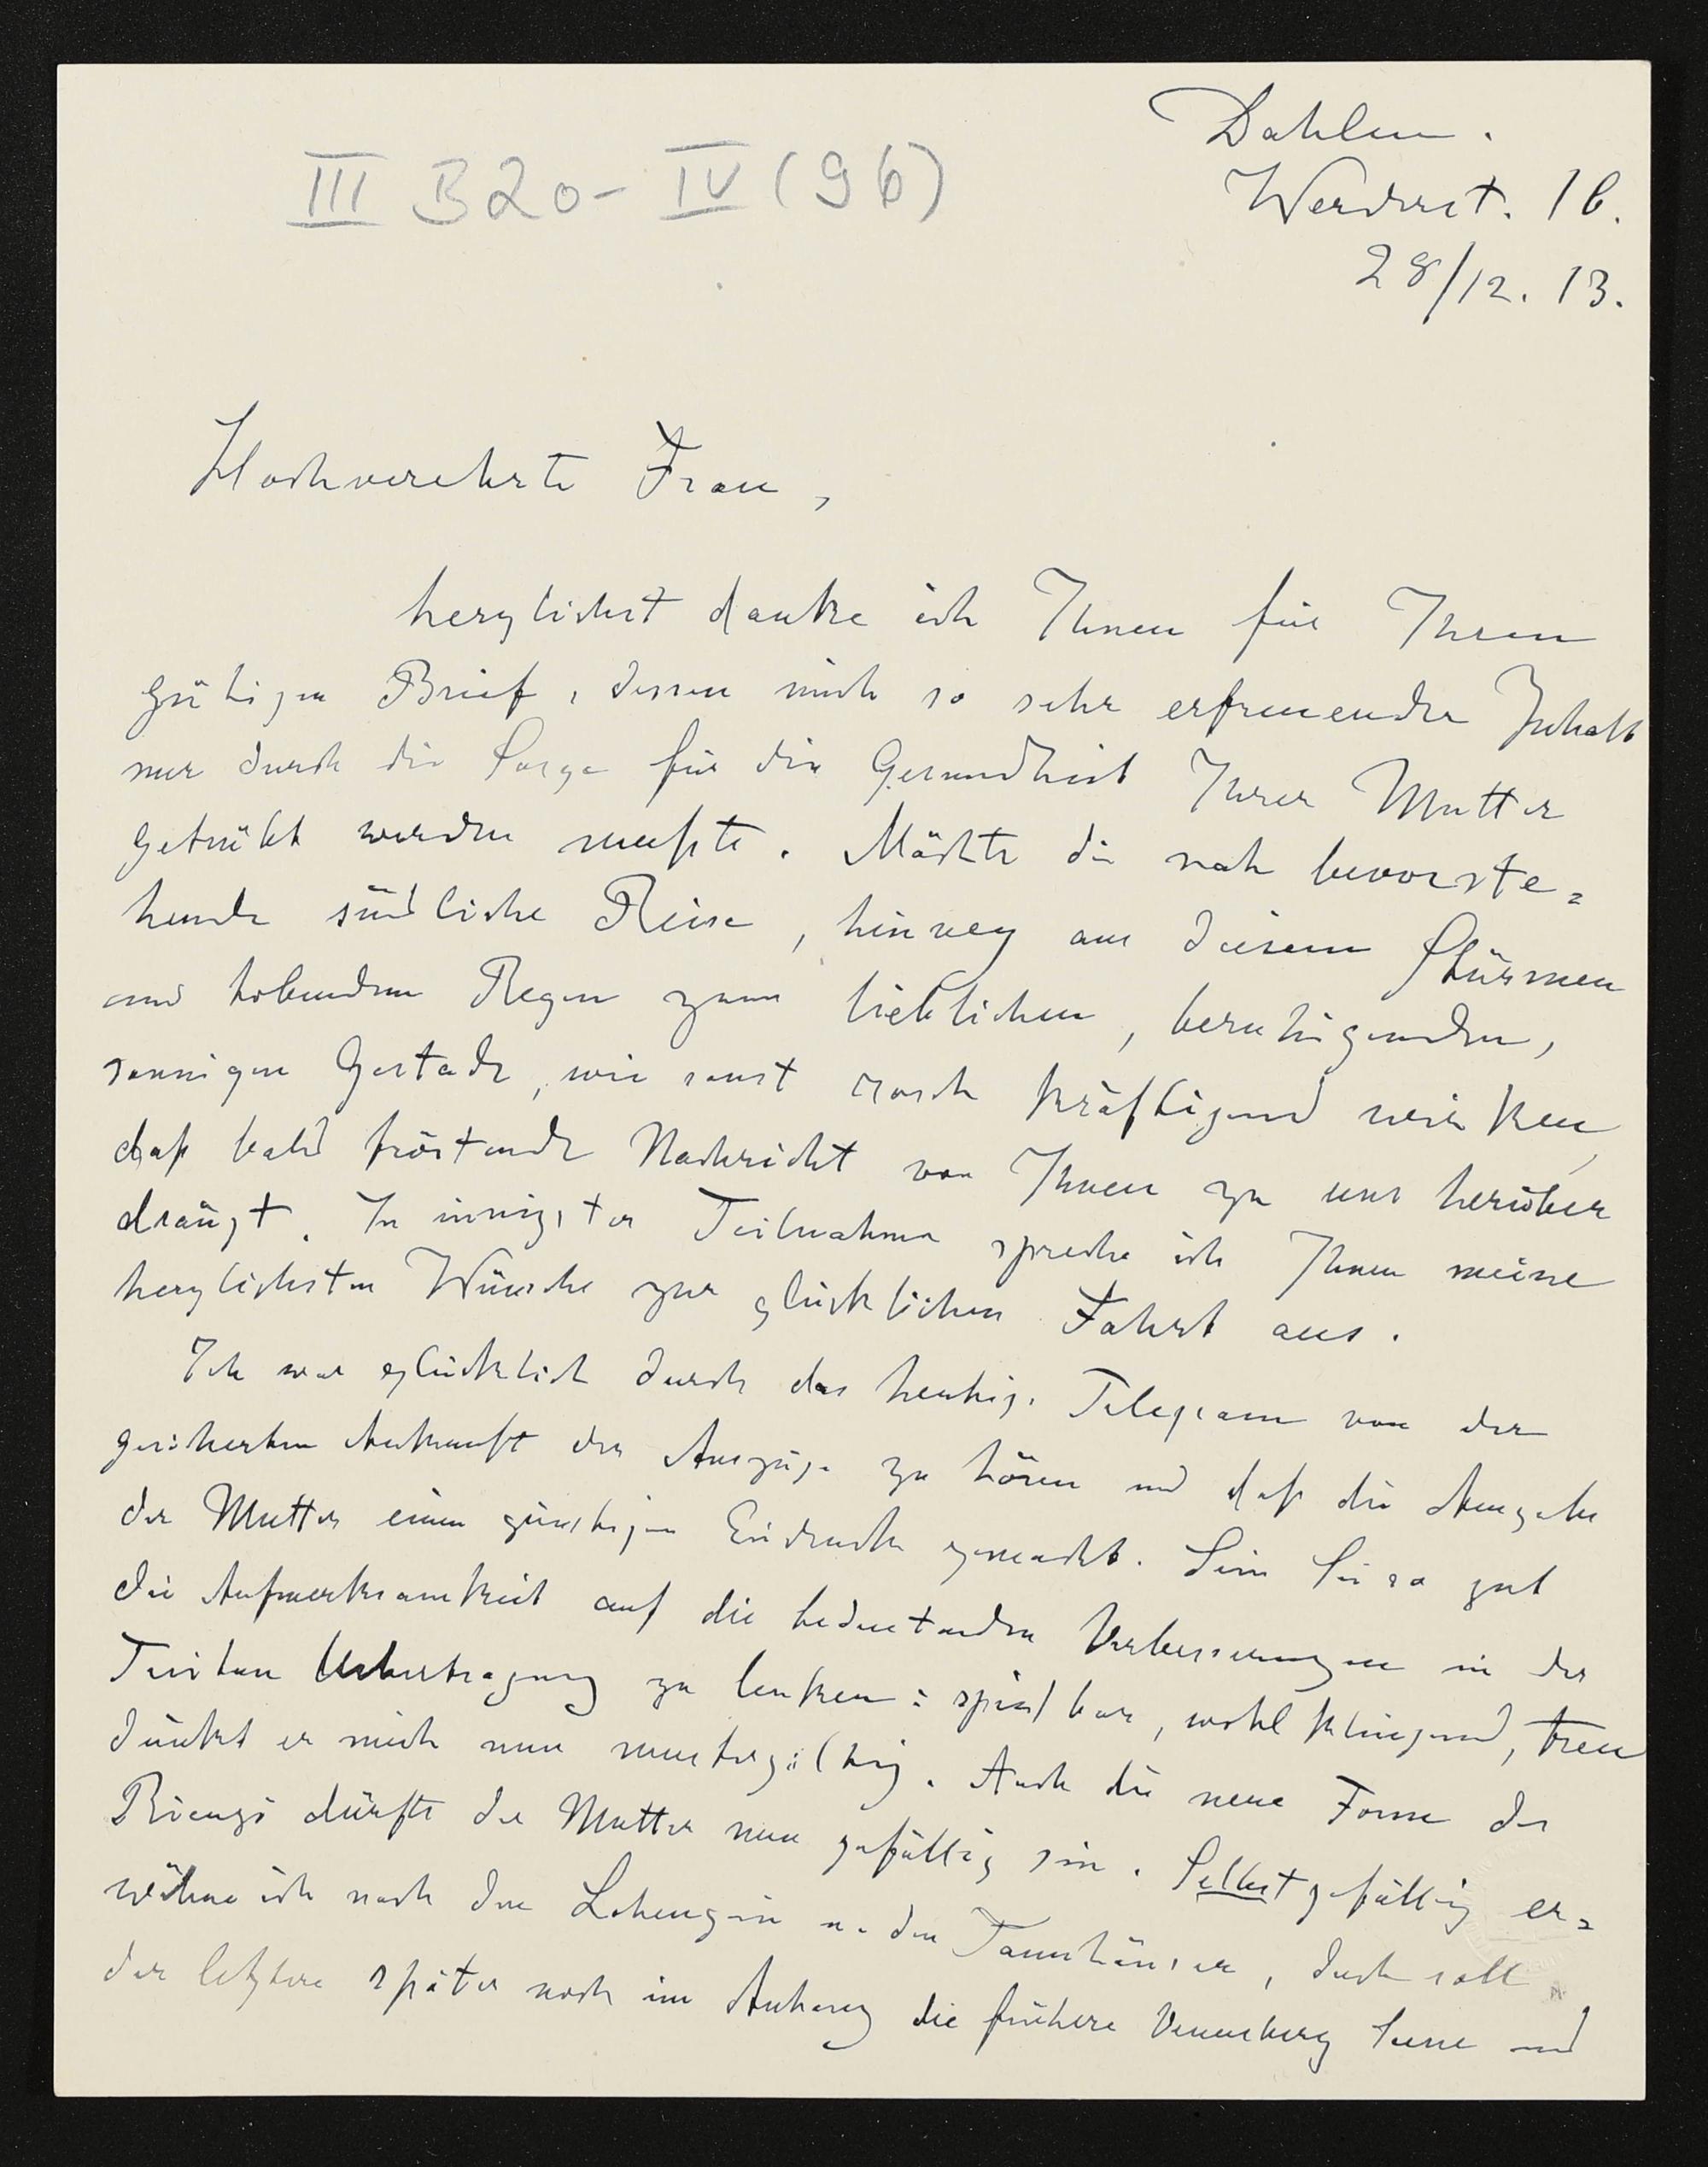 III B20-IV (96)
Dahlem.
Werderst. 16.
28/12. 13.
Hochverehrte Frau,
herzlichst danke ich Ihnen für Ihren
gütigen Brief, dessen mich so sehr erfreuender Inhalt
nur durch die Sorge für die Gesundheit Ihrer Mutter
getrübt werden mußte. Möchte die nah bevorste=
hende südliche Reise, hinweg aus diesem Stürmen
und tobendem Regen zum lieblichen, beruhigenden,
sonnigen Gestade, wie sonst rasch kräftigend wirken,
daß bald tröstende Nachricht von Ihnen zu uns herüber
drängt. In innigster Teilnahme spreche ich Ihnen meine
herzlichsten Wünsche zur glücklichen Fahrt aus.
Ich war glücklich durch das heutige Telegram von der
gesicherten Ankunft der Auszüge zu hören und daß die Ausgabe
der Mutter einen günstigen Eindruck gemacht. Sein Sie so gut
die Aufmerksamkeit auf die bedeutenden Verbesserungen in der
Tristan Uebertragung zu lenken: spielbar, wohlklingend, treu
dünkt er mich nun mustergültig. Auch die neue Form des
Rienzi dürfte der Mutter nun gefällig sein. Selbstgefällig er=
wähne ich noch den Lohengrin u. den Tannhäuser, doch soll
der letztere später noch im Anhang die frühere Venusberg Scene und